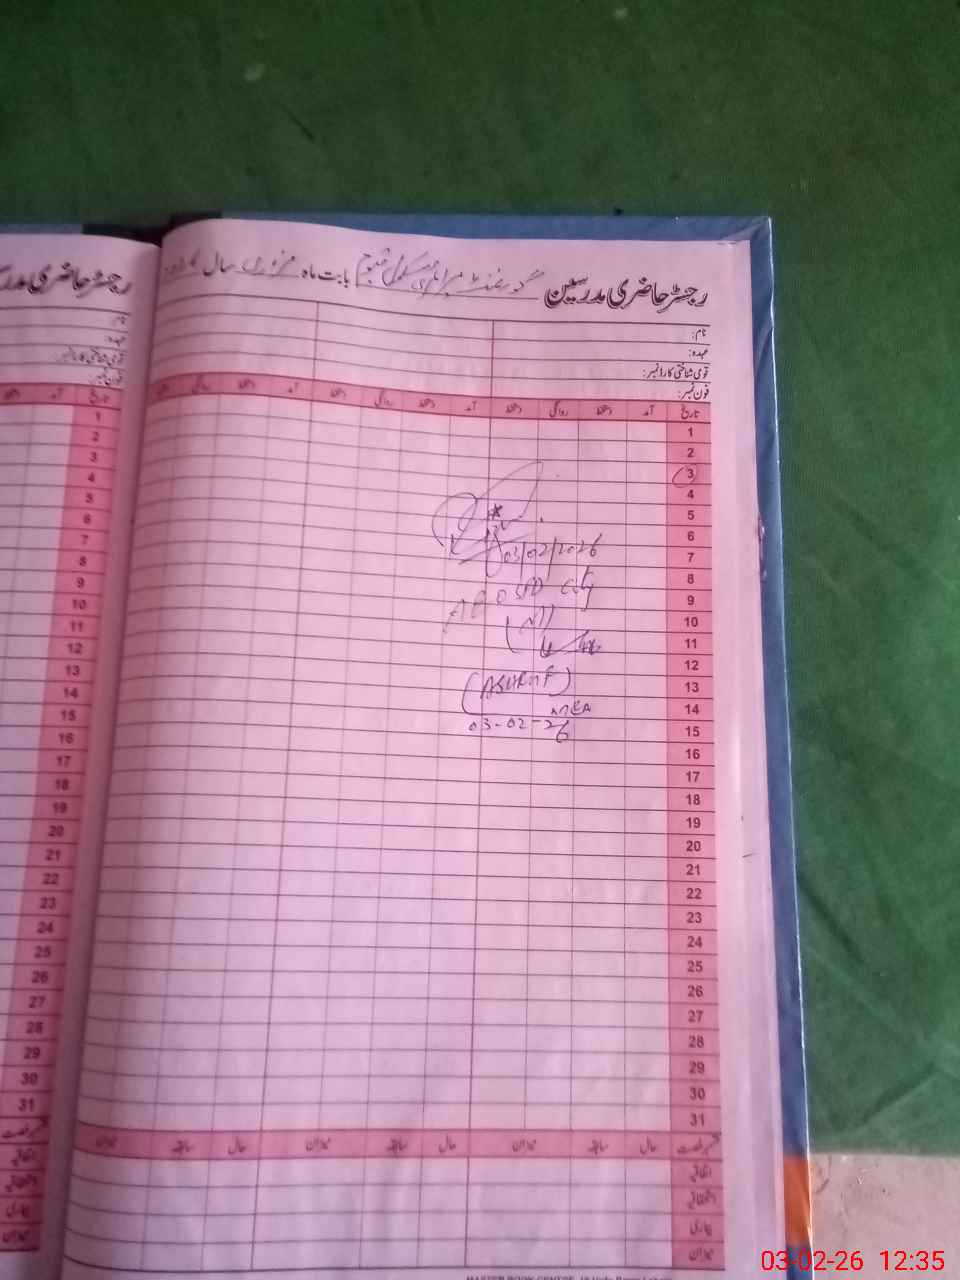 رجسٹر حاضری مدرسین گورنمنٹ پرائمری سکول بابت ماہ فروری سال
نام:
عہدہ:
قومی شناختی کارڈ نمبر:
فون نمبر:
تاریخ آمد دستخط روانگی دستخط آمد دستخط روانگی دستخط آمد دستخط روانگی دستخط
1
2
3
4
5
6
7
8
9
10
11
12
13
14
15
16
17
18
19
20
21
22
23
24
25
26
27
28
29
30
31
03/02/2026
(ASHRAF)
MEA
03-02-26
قسم رخصت حال سابقہ میزان حال سابقہ میزان حال سابقہ میزان
اتفاقیہ
استحقاقیہ
بیماری
میزان
رجسٹر حاضری مدرسین
نام:
عہدہ:
قومی شناختی کارڈ نمبر:
فون نمبر:
تاریخ آمد دستخط
1
2
3
4
5
6
7
8
9
10
11
12
13
14
15
16
17
18
19
20
21
22
23
24
25
26
27
28
29
30
31
قسم رخصت
اتفاقیہ
استحقاقیہ
بیماری
میزان
03-02-26 12:35